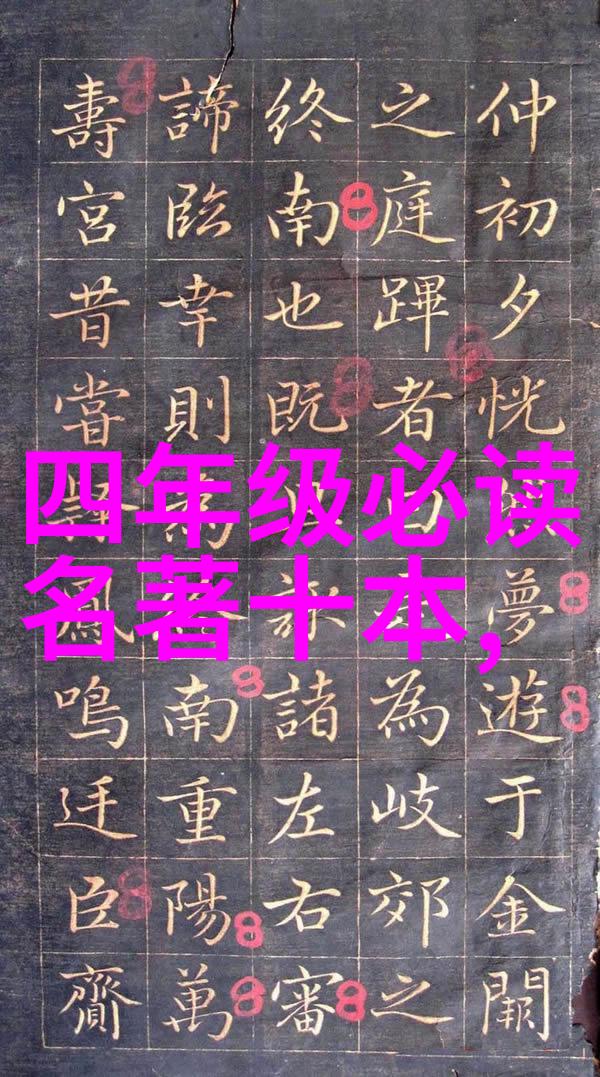 仲初夕恍夢遊于金闕
之庭蹕者曰為岐郊之
終南也既詠諸左右審
諦臨幸則為南重陽萬
壽宮昔當鳳鳴廷臣齎
四年级必读
名著十本,